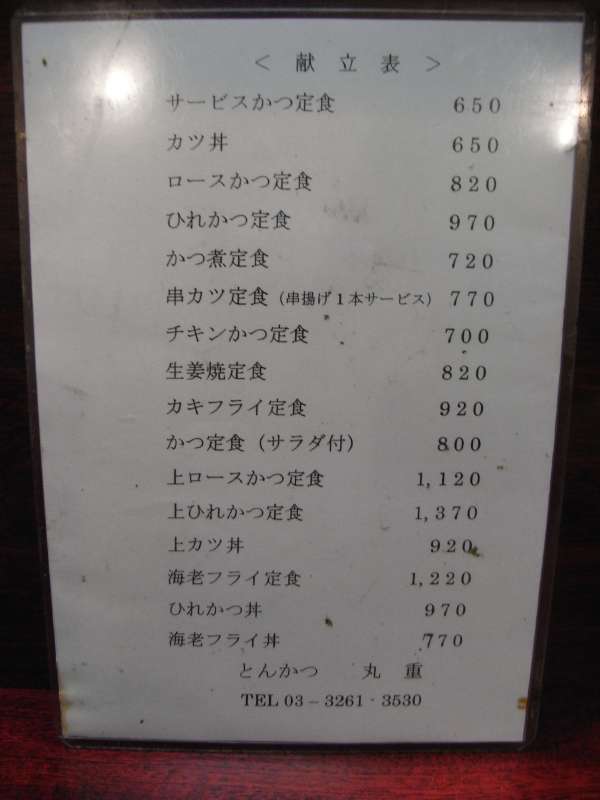 < 献立表 >
サービスかつ定食 650
カツ丼 650
ロースかつ定食 820
ひれかつ定食 970
かつ煮定食 720
串カツ定食(串揚げ1本サービス) 770
チキンかつ定食 700
生姜焼定食 820
カキフライ定食 920
かつ定食(サラダ付) 800
上ロースかつ定食 1,120
上ひれかつ定食 1,370
上カツ丼 920
海老フライ定食 1,220
ひれかつ丼 970
海老フライ丼 770
とんかつ 丸重
TEL 03-3261・3530